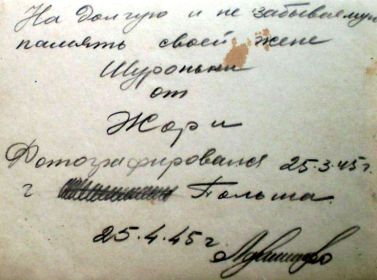 На долгую и не забываемую
память своей жене
Шуроньки
от
Жоры
Фотографировался 25.3.45г.
г Польша
25.4.45г.